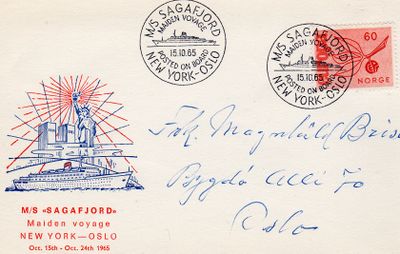 M/S SAGAFJORD
MAIDEN VOYAGE
15.10.65
POSTED ON BOARD
NEW YORK-OSLO
M/S SAGAFJORD
MAIDEN VOYAGE
15.10.65
POSTED ON BOARD
NEW YORK-OSLO
60
NORGE
Frk. Magnhild
Bygdö Allé 70
Oslo
M/S «SAGAFJORD»
Maiden voyage
NEW YORK—OSLO
Oct. 15th - Oct. 24th 1965